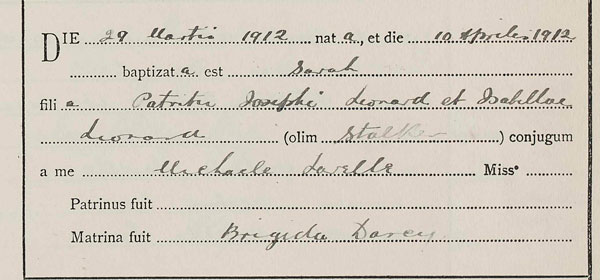 DIE 29 Martii 1912 nat a, et die 10 Aprilis 1912
baptizat a est Sarah
fili a Patritii Josephi Leonard et Isabellae
Leonard (olim Stalker) conjugum
a me Michaele Lavelle Misso
Patrinus fuit
Matrina fuit Brigida Darcy